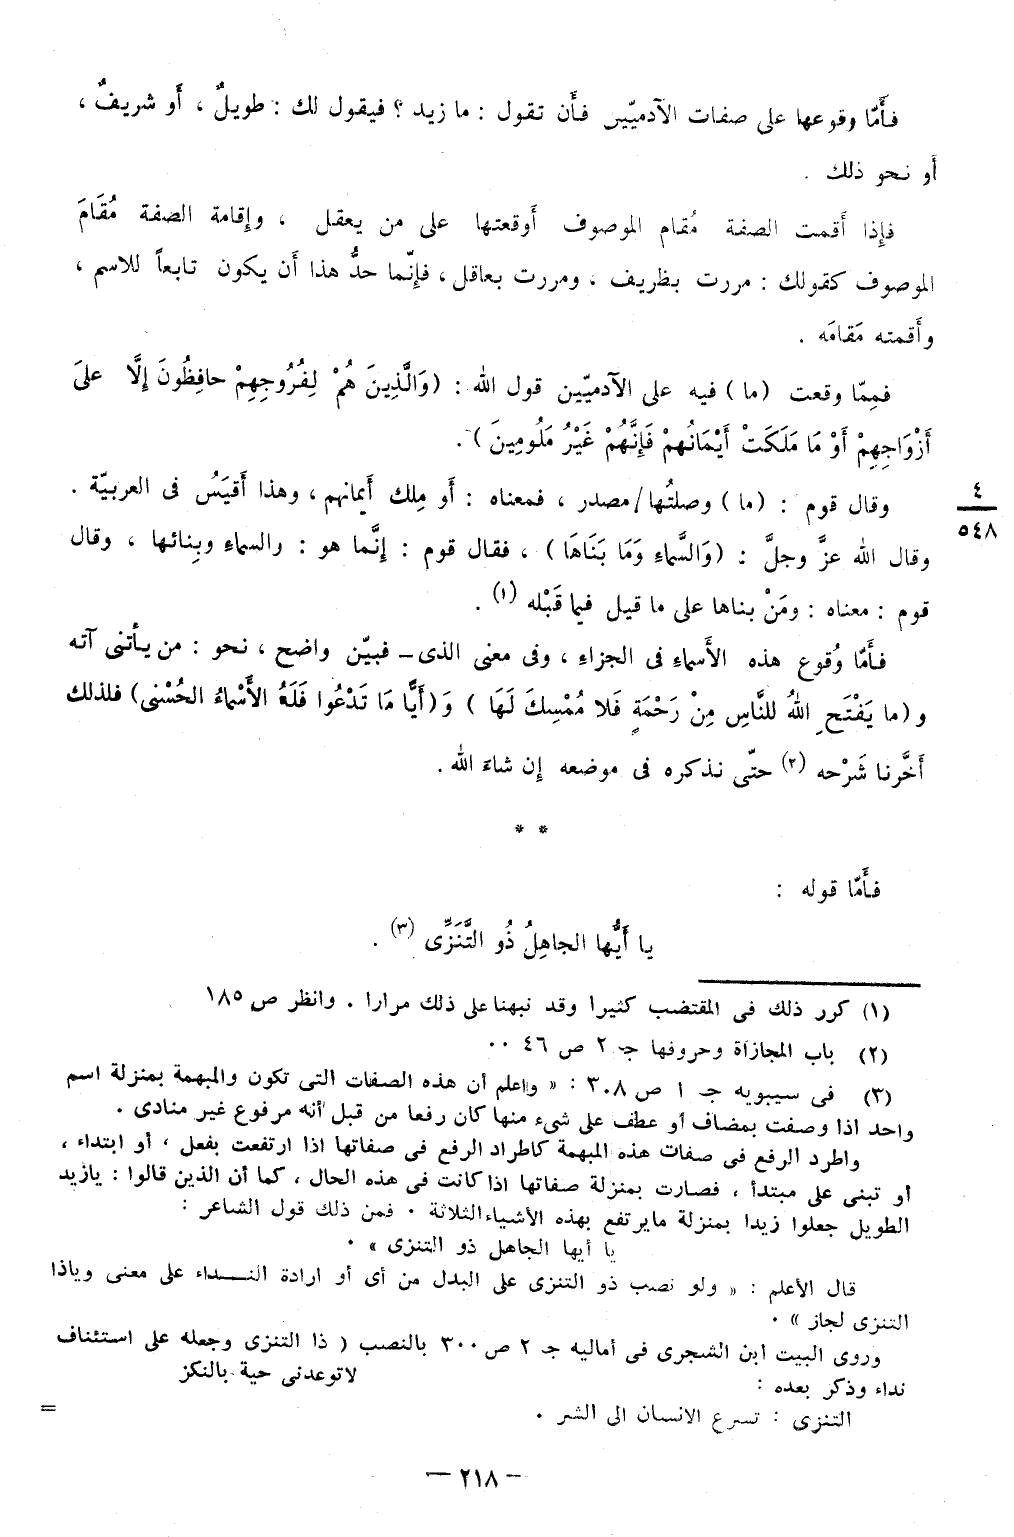 فأَمّا وقوعها على صفات الآدميّين فأَن تقول : ما زيد ؟ فيقول لك : طويلٌ ، أَو شريفٌ ،
أَو نحو ذلك .
فإِذا أَقمت الصفة مُقام الموصوف أَوقعتها على من يعقل ، وإِقامة الصفة مُقَامَ
الموصوف كقولك : مررت بظريف ، ومررت بعاقل ، فإِنّما حدُّ هذا أَن يكون تابعاً للاسم ،
وأَقمته مَقامَه .
فمِمّا وقعت (ما) فيه على الآدميّين قول الله : (وَالَّذِينَ هُمْ لِفُرُوجِهِمْ حافِظُونَ إِلَّا علىَ
أَزْوَاجِهِمْ أَوْ مَا مَلَكَتْ أَيْمَانُهمْ فَإِنَّهُمْ غَيْرُ مَلُومِينَ ) .
وقال قوم : (ما) وصلتُها/مصدر ، فمعناه : أَو مِلك أَيمانهم ، وهذا أَقيَسُ فى العربيّة .
٤
٥٤٨
وقال الله عزَّ وجلَّ : (وَالسَّماءِ وَمَا بَنَاهَا) ، فقال قوم : إِنَّما هو : والسماءِ وبِنائها ، وقال
قوم : معناه : ومَنْ بناها على ما قيل فيما قَبْله (١) .
فأَمّا وُقوع هذه الأَسماءِ فى الجزاءِ ، وفى معنى الذى ــ فبيّن واضح ، نحو : من يأتنى آته
و (ما يَفْتَحِ اللهُ للنَّاسِ مِنْ رَحْمَةٍ فَلا مُمْسِكَ لَهَا ) وَ (أَيًّا مَا تَدْعُوا فَلَهُ الأَسْماءُ الحُسْنى) فلذلك
أَخَّرنا شَرْحه (٢) حتّى نذكره فى موضعه إِن شاءَ الله .
* *
فأَمّا قوله :
يا أَيُّها الجاهِلُ ذُو التَّنَزِّى (٣) .
(١) كرر ذلك فى المقتضب كثيرا وقد نبهنا على ذلك مرارا . وانظر ص ١٨٥
(٢) باب المجازاة وحروفها جـ ٢ ص ٤٦ . .
(٣) فى سيبويه جـ ١ ص ٣٠٨ : « واعلم أن هذه الصفات التى تكون والمبهمة بمنزلة اسم
واحد اذا وصفت بمضاف أو عطف على شىء منها كان رفعا من قبل أنه مرفوع غير منادى .
واطرد الرفع فى صفات هذه المبهمة كاطراد الرفع فى صفاتها اذا ارتفعت بفعل ، أو ابتداء ،
أو تبنى على مبتدأ ، فصارت بمنزلة صفاتها اذا كانت فى هذه الحال ، كما أن الذين قالوا : يازيد
الطويل جعلوا زيدا بمنزلة مايرتفع بهذه الأشياء الثلاثة . فمن ذلك قول الشاعر :
يا أيها الجاهل ذو التنزى » .
قال الأعلم : « ولو نصب ذو التنزى على البدل من أى أو ارادة النـــداء على معنى وياذا
التنزى لجاز » .
وروى البيت ابن الشجرى فى أماليه جـ ٢ ص ٣٠٠ بالنصب ( ذا التنزى وجعله على استئناف
نداء وذكر بعده :
لاتوعدنى حية بالنكز
التنزى : تسرع الانسان الى الشر .
=
— ٢١٨ —